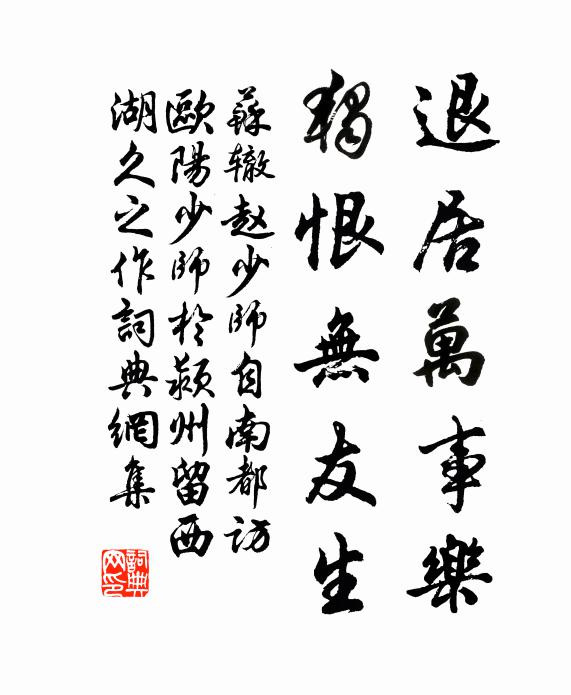 退居萬事樂
獨恨無友生
蘇辙趙少師自南都访
歐陽少師於颍州留西
湖久之作詞典網集
詞典网印